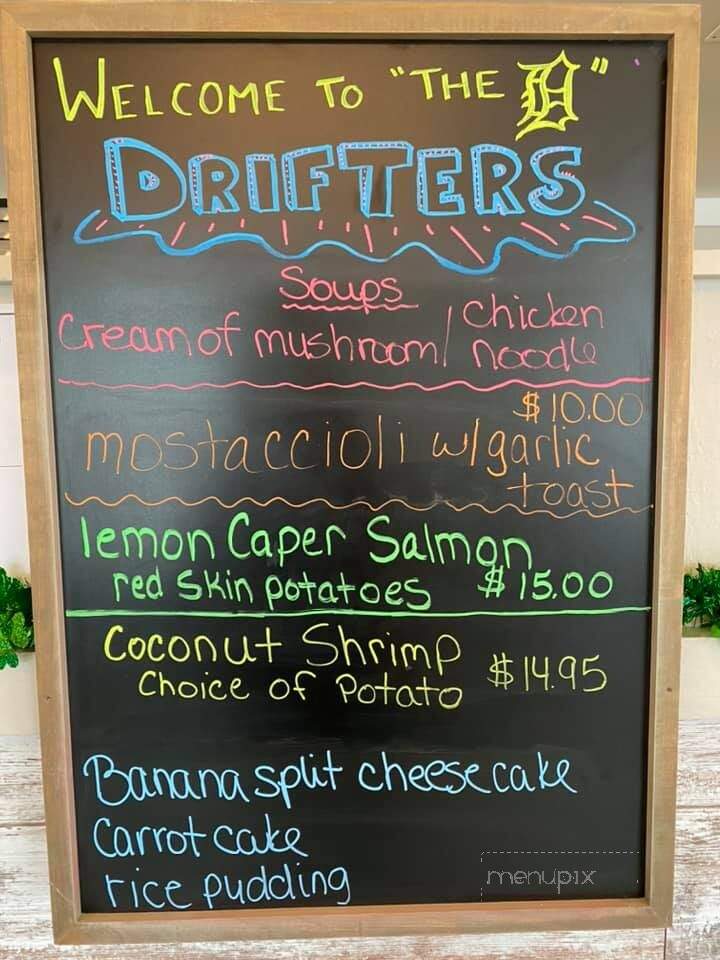 WELCOME TO "THE D"
DRIFTERS
Soups
Cream of mushroom / chicken noodle
$10.00
mostaccioli w/garlic
toast
lemon Caper Salmon
red Skin potatoes $15.00
Coconut Shrimp
Choice of Potato $14.95
Banana split cheesecake
Carrot cake
rice pudding
menupix